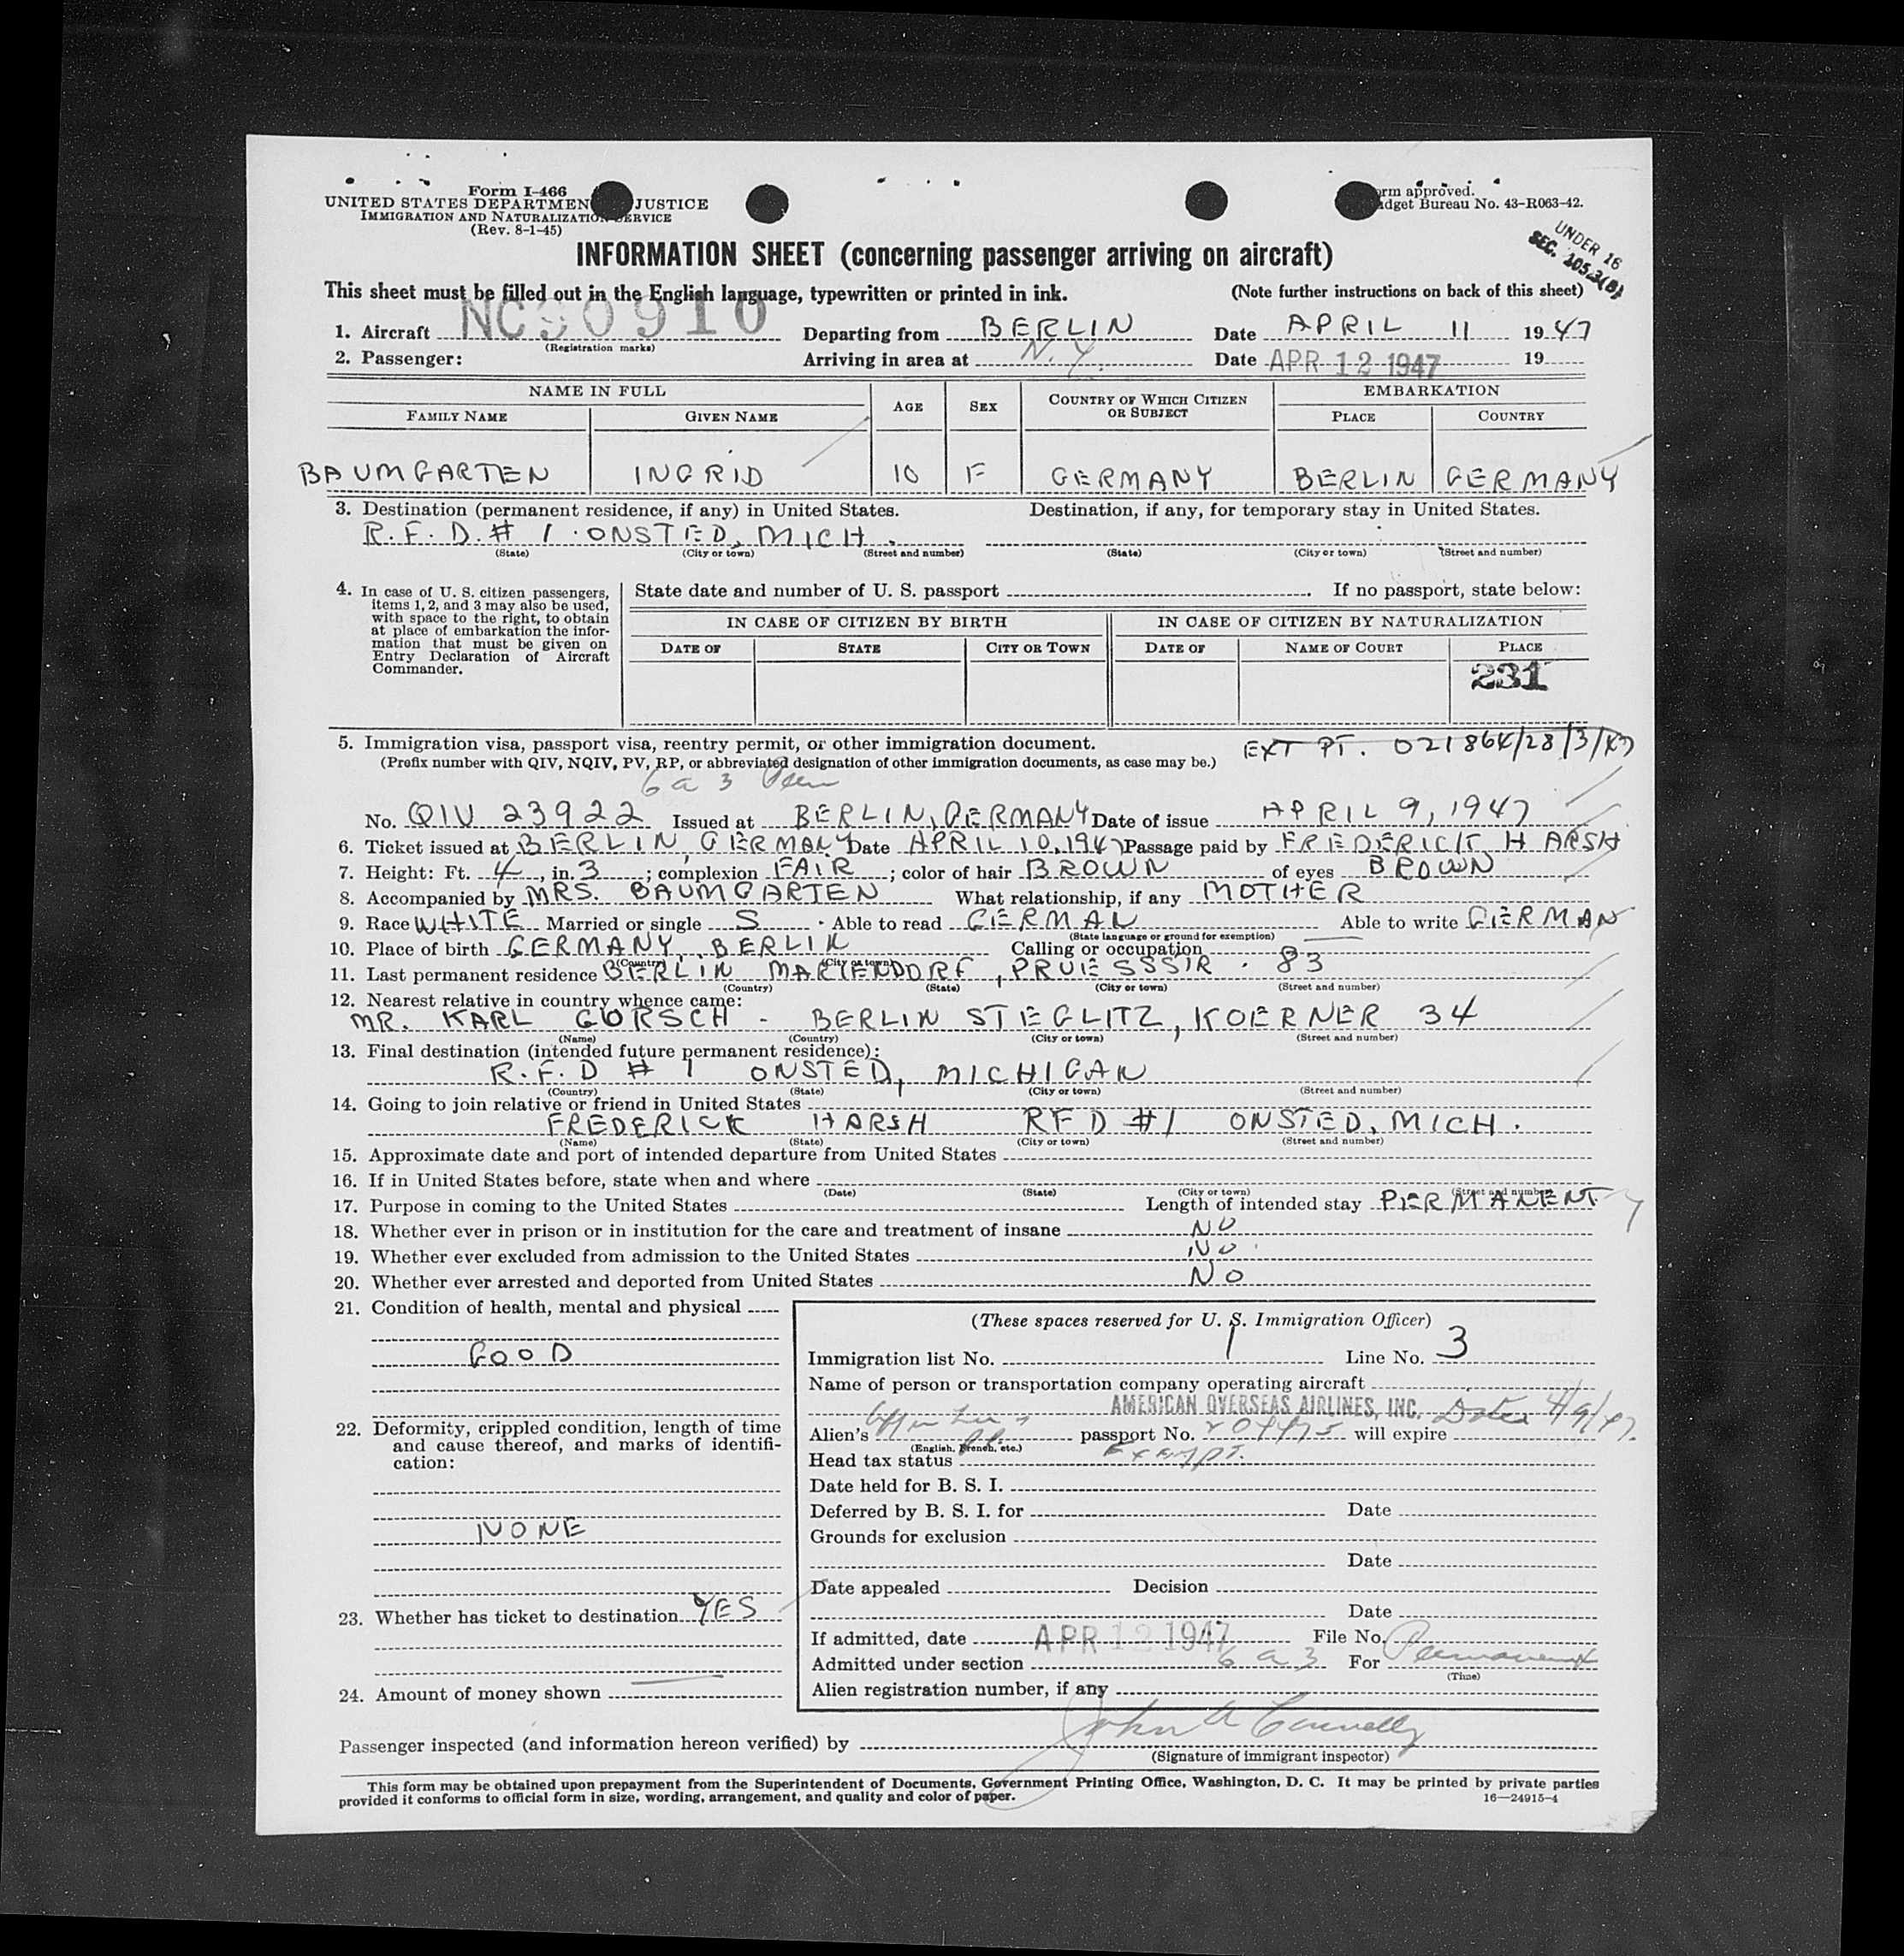 Form I-466
UNITED STATES DEPARTMEN JUSTICE
IMMIGRATION AND NATURALIZATION SERVICE
(Rev. 8-1-45)
orm approved.
dget Bureau No. 43-R063-42.
UNDER 16
SEC. 105.3(B)
INFORMATION SHEET (concerning passenger arriving on aircraft)
This sheet must be filled out in the English language, typewritten or printed in ink. (Note further instructions on back of this sheet)
1. Aircraft NC90910 Departing from BERLIN Date APRIL 11 1947
(Registration marks)
2. Passenger: Arriving in area at N.Y. Date APR 12 1947 19
NAME IN FULL AGE SEX COUNTRY OF WHICH CITIZEN OR SUBJECT EMBARKATION
FAMILY NAME GIVEN NAME PLACE COUNTRY
BAUMGARTEN INGRID 10 F GERMANY BERLIN GERMANY
3. Destination (permanent residence, if any) in United States. Destination, if any, for temporary stay in United States.
R.F.D. # 1 ONSTED, MICH.
(State) (City or town) (Street and number) (State) (City or town) (Street and number)
4. In case of U. S. citizen passengers, items 1, 2, and 3 may also be used, with space to the right, to obtain at place of embarkation the information that must be given on Entry Declaration of Aircraft Commander.
State date and number of U. S. passport . If no passport, state below:
IN CASE OF CITIZEN BY BIRTH IN CASE OF CITIZEN BY NATURALIZATION
DATE OF STATE CITY OR TOWN DATE OF NAME OF COURT PLACE
231
5. Immigration visa, passport visa, reentry permit, or other immigration document. EXT PT. 021864/28/3/47
(Prefix number with QIV, NQIV, PV, RP, or abbreviated designation of other immigration documents, as case may be.)
6 a 3 Perm
No. QIV 23922 Issued at BERLIN, GERMANY Date of issue APRIL 9, 1947
6. Ticket issued at BERLIN, GERMANY Date APRIL 10, 1947 Passage paid by FREDERICK HARSH
7. Height: Ft. 4, in. 3; complexion FAIR; color of hair BROWN of eyes BROWN
8. Accompanied by MRS. BAUMGARTEN What relationship, if any MOTHER
9. Race WHITE Married or single S Able to read GERMAN Able to write GERMAN
(State language or ground for exemption)
10. Place of birth GERMANY, BERLIN Calling or occupation
(Country) (City or town)
11. Last permanent residence BERLIN MARIENDORF, PRUESSSTR. 83
(Country) (State) (City or town) (Street and number)
12. Nearest relative in country whence came:
MR. KARL GORSCH - BERLIN STEGLITZ, KOERNER 34
(Name) (Country) (City or town) (Street and number)
13. Final destination (intended future permanent residence):
R.F.D # 1 ONSTED, MICHIGAN
(Country) (State) (City or town) (Street and number)
14. Going to join relative or friend in United States
FREDERICK HARSH RFD #1 ONSTED, MICH.
(Name) (State) (City or town) (Street and number)
15. Approximate date and port of intended departure from United States
16. If in United States before, state when and where
(Date) (State) (City or town) (Street and number)
17. Purpose in coming to the United States Length of intended stay PERMANENT
18. Whether ever in prison or in institution for the care and treatment of insane NO
19. Whether ever excluded from admission to the United States NO
20. Whether ever arrested and deported from United States NO
21. Condition of health, mental and physical
GOOD
22. Deformity, crippled condition, length of time and cause thereof, and marks of identification:
NONE
23. Whether has ticket to destination YES
24. Amount of money shown
(These spaces reserved for U. S. Immigration Officer)
Immigration list No. 1 Line No. 3
Name of person or transportation company operating aircraft
AMERICAN OVERSEAS AIRLINES, INC. Dated 4/9/47.
Alien's passport No. will expire
(English, French, etc.)
Head tax status Exempt.
Date held for B. S. I.
Deferred by B. S. I. for Date
Grounds for exclusion
Date
Date appealed Decision
Date
If admitted, date APR 12 1947 File No.
Admitted under section 6 a 3 For Permanent
(Time)
Alien registration number, if any
Passenger inspected (and information hereon verified) by John A Connelly
(Signature of immigrant inspector)
This form may be obtained upon prepayment from the Superintendent of Documents, Government Printing Office, Washington, D. C. It may be printed by private parties
provided it conforms to official form in size, wording, arrangement, and quality and color of paper. 16—24915-4